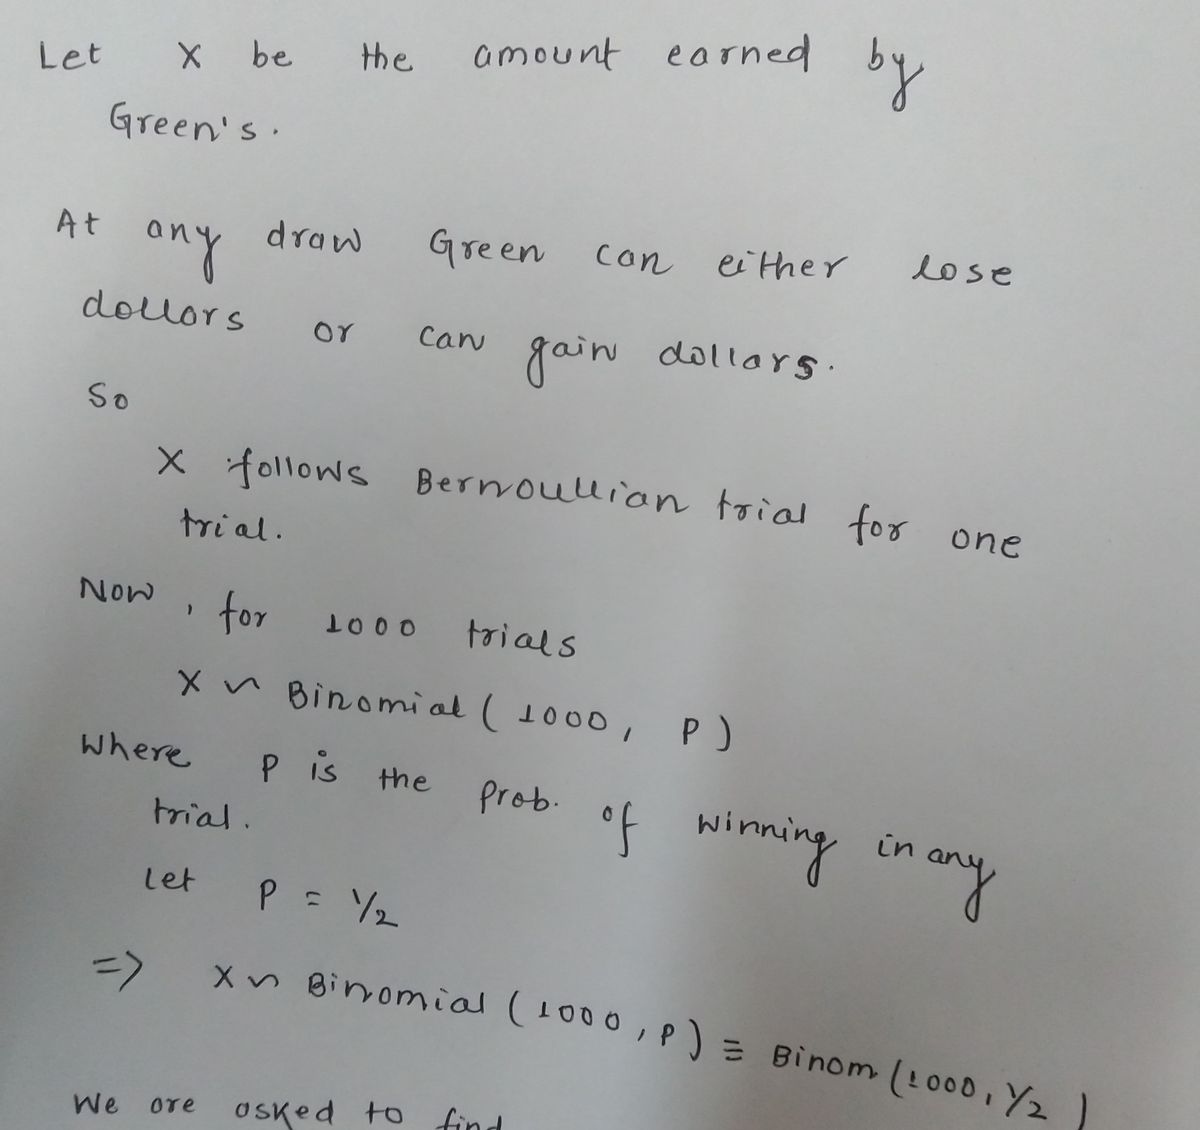 Let X be the amount earned by
Green's.
At any draw Green can either lose
dollars or can gain dollars.
So
X follows Bernoullian trial for one
trial.
Now, for 1000 trials
X ~ Binomial (1000, P)
Where P is the Prob. of winning in any
trial.
Let P = 1/2
=> X ~ Binomial (1000, P) ≡ Binom (1000, 1/2)
We are asked to find